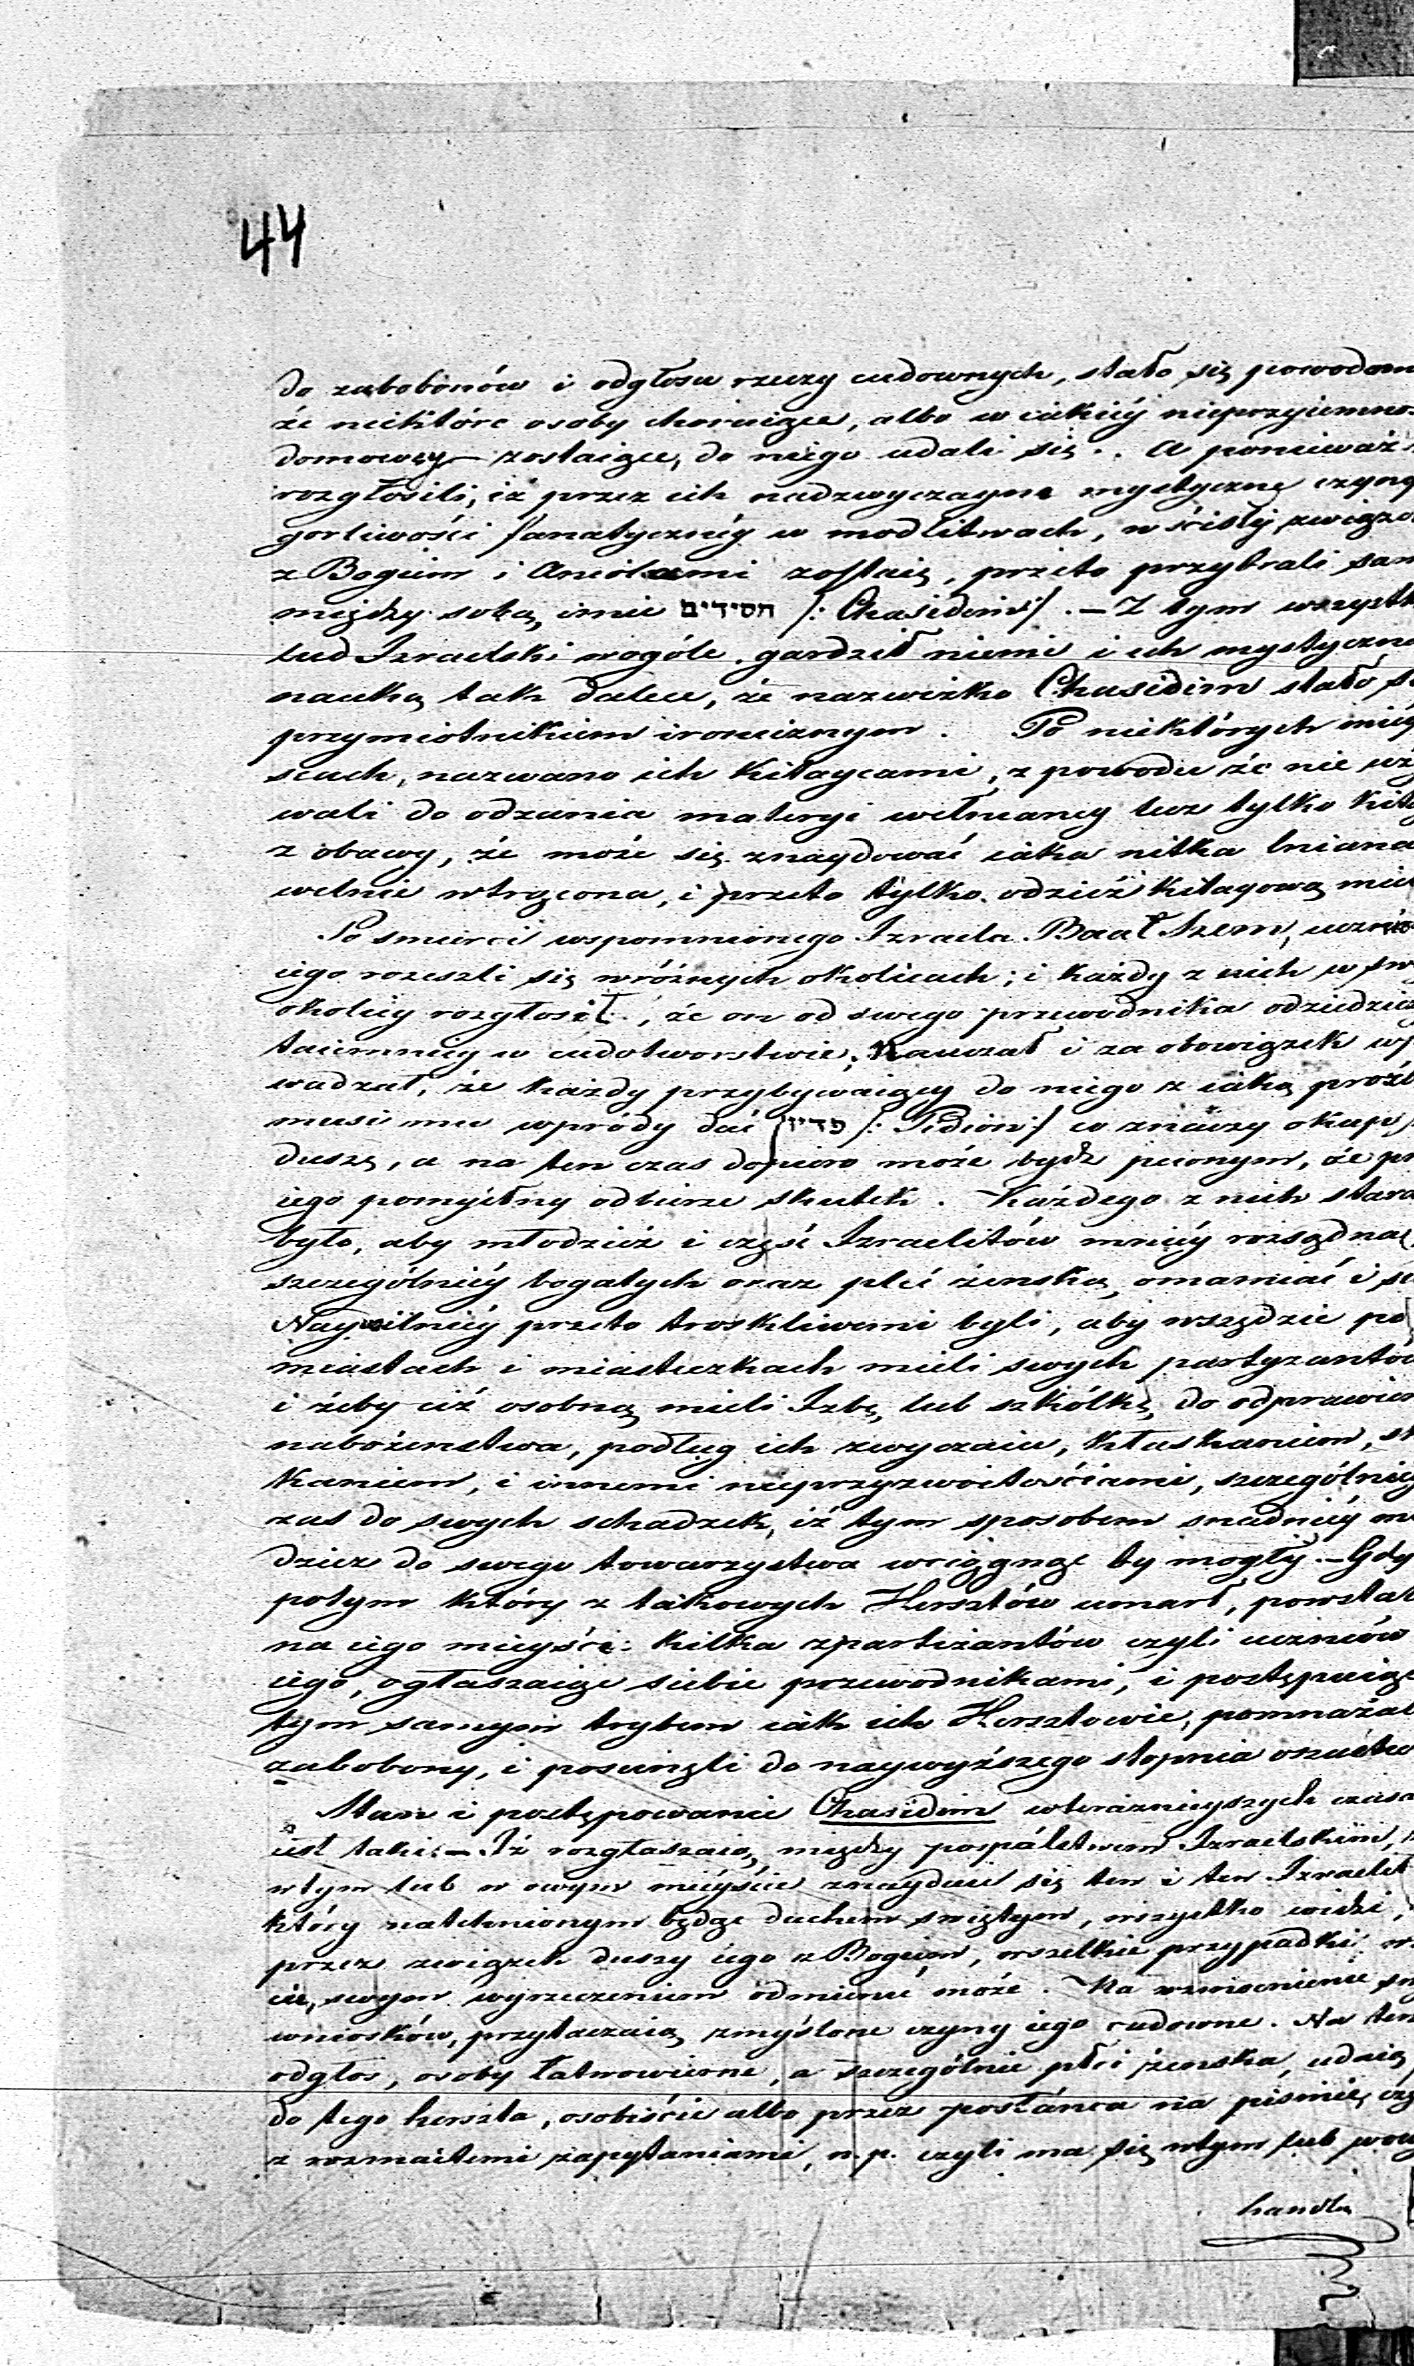 44
do zabobonów i odgłosu rzeczy cudownych, stało się powodem
że niektóre osoby choruiące, albo w iakiéy nieprzyiemnoś
domowéy zostaiące, do niego udali się. A ponieważ
rozgłosili, iż przez ich nadzwyczayne mystyczne czyn
gorliwości fanatycznéy w modlitwach, w ścisły związ
z Bogiem i Aniołami zostaią, przeto przybrali sam
między sobą imie חסידים /: Chasidim :/ . — Z tym wszystk
lud Izraelski wogóle gardził niemi i ich mystyczn
nauką tak dalece, że nazwisko Chasidim stało s
przymiotnikiem ironicznym . Po niektórych miéy
scach, nazwano ich Kitaycami, z powodu że nie uż
wali do odzania materyi wełnianey lecz tylko kita
z obawy, że może się znaydować iaka nitka lniana
wełnie wtrącona, i przeto tylko odzież kitayową mie
Po smierci wspomnionego Izraela Baal Szem, uczni
iego rozeszli się wróżnych okolicach; i każdy z nich w sw
okolicy rozgłosił, że on od swego przewodnika odziedzi
taiemnicę w cudotworstwie; Nauczał i za obowiązek w
wadzał, że każdy przybywaiący do niego z iaką proźb
musi mu wpródy dać פדיון /: Pidion :/ co znaczy okup
duszę, a na ten czas dopiero może bydź pewnym, że pr
iego pomyślny odbierze skutek . Każdego z nich stara
było, aby młodzież i część Izraelitów mniéy rozsądną,
szczególniéy bogatych oraz płeć żenską, omamiać i
Nayusilniéy przeto troskliwemi byli, aby wszędzie po
miastach i miasteczkach mieli swych partyzantów
i żeby ciż osobną mieli Izbę, lub szkólkę, do odprawien
nabożenstwa, podług ich zwyczaiu, kłaskaniem, s
kaniem, i innemi nieprzyzwoitościami, szczególniéy
zas do swych schadzek, iż tym sposobem snadniéy m
dzież do swego towarzystwa wciągnąć by mogły. — Gdy
potym który z takowych Hersztów umarł, powstał
na iego mieyscę kilka zpartizantów czyli uczniów
iego, ogłaszaiąc siebie przewodnikami, i postępuiąc
tym samym trybem iak ich Hersztowie, pomnażal
zabobony, i posunęli do naywyższego stopnia oszustw
Stan i postępowanie Chasidim wteraznieyszych czasa
iest taki. — Iż rozgłaszaią, między pospólstwem Izraelskim,
wtym lub w owym mieyście znayduie się ten i ten Izraelit
który natchnionym będąc duchem swiętym, wszystko widzi,
przez związek duszy iego z Bogiem, wszelkie przypadki
swym wyrzeczeniem odmienić może. Na wzmocnienie sw
wniosków, przytaczaią zmyślone czyny iego cudowne. Na ten
odgłos, osoby łatwowierne, a szczególnie płci żenska, udaią
do tego herszta, osobiście albo przez posłánca na pismie,
z rozmaitemi zapytaniami, n.p. czyli ma się wtym lub wow
handlu